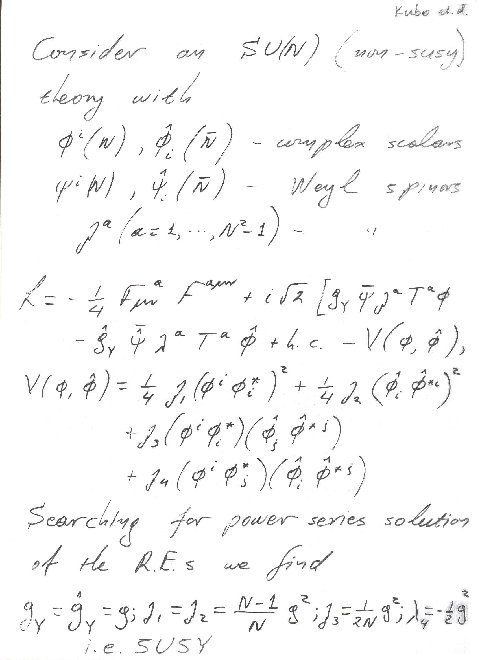 Kubo et. al.
Consider an SU(N) (non-susy)
theory with
ϕ^i (N), ϕ̂_i (N̄) - complex scalars
ψ^i (N), ψ̂_i (N̄) - Weyl spinors
λ^a (a=1,...,N²-1) - "
L = -1/4 F_μν^a F^{aμν} + i√2 [g_Y ψ̄ λ^a T^a ϕ
- ĝ_Y ψ̂̄ λ^a T^a ϕ̂ + h.c. - V(ϕ,ϕ̂),
V(ϕ,ϕ̂) = 1/4 λ_1 (ϕ^i ϕ_i^*)² + 1/4 λ_2 (ϕ̂_i ϕ̂^{*i})²
+ λ_3 (ϕ^i ϕ_i^*)(ϕ̂_j ϕ̂^{*j})
+ λ_4 (ϕ^i ϕ_j^*)(ϕ̂_i ϕ̂^{*j})
Searching for power series solution
of the R.E.s we find
g_Y = ĝ_Y = g; λ_1 = λ_2 = (N-1)/N g²; λ_3 = 1/2N g²; λ_4 = -1/2 g²
i.e. SUSY